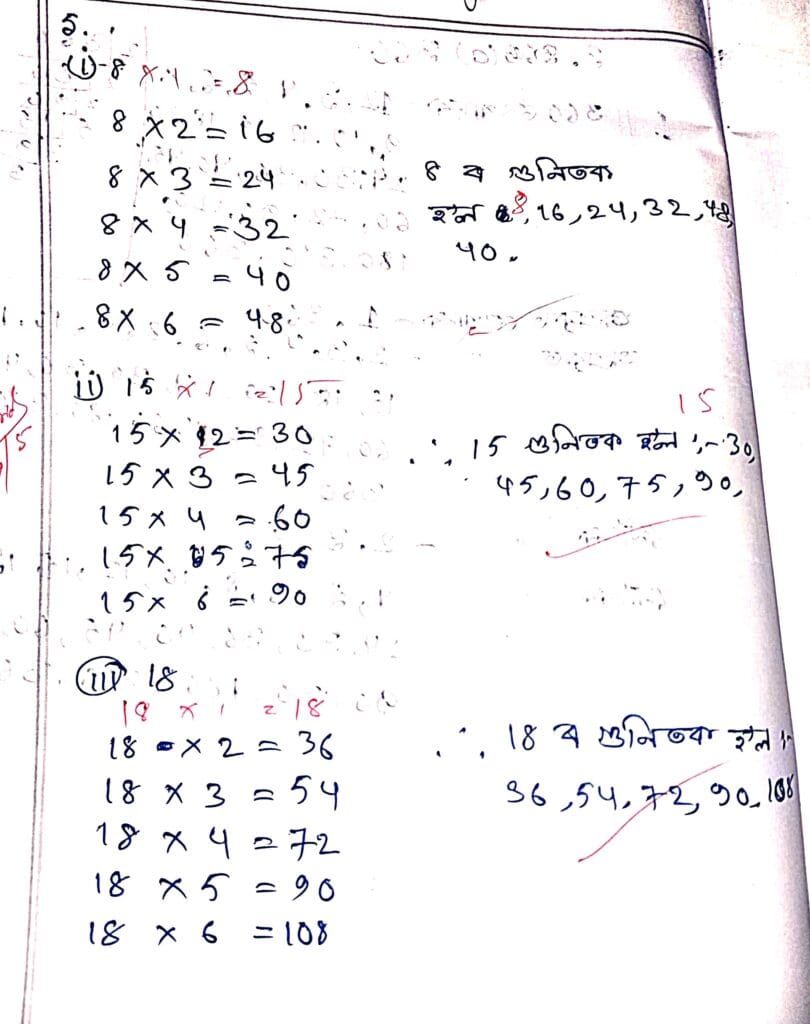 5.
(i) 8 × 1 = 8
8 × 2 = 16
8 × 3 = 24
8 × 4 = 32
8 × 5 = 40
8 × 6 = 48
8 ৰ গুনিতক
হ'ল 8, 16, 24, 32, 48,
40.
ii) 15 × 1 = 15
15 × 2 = 30
15 × 3 = 45
15 × 4 = 60
15 × 5 = 75
15 × 6 = 90
15
∴ 15 গুনিতক হ'ল :- 30,
45, 60, 75, 90,
(iii) 18
18 × 1 = 18
18 × 2 = 36
18 × 3 = 54
18 × 4 = 72
18 × 5 = 90
18 × 6 = 108
∴ 18 ৰ গুনিতক হ'ল :-
36, 54, 72, 90, 108